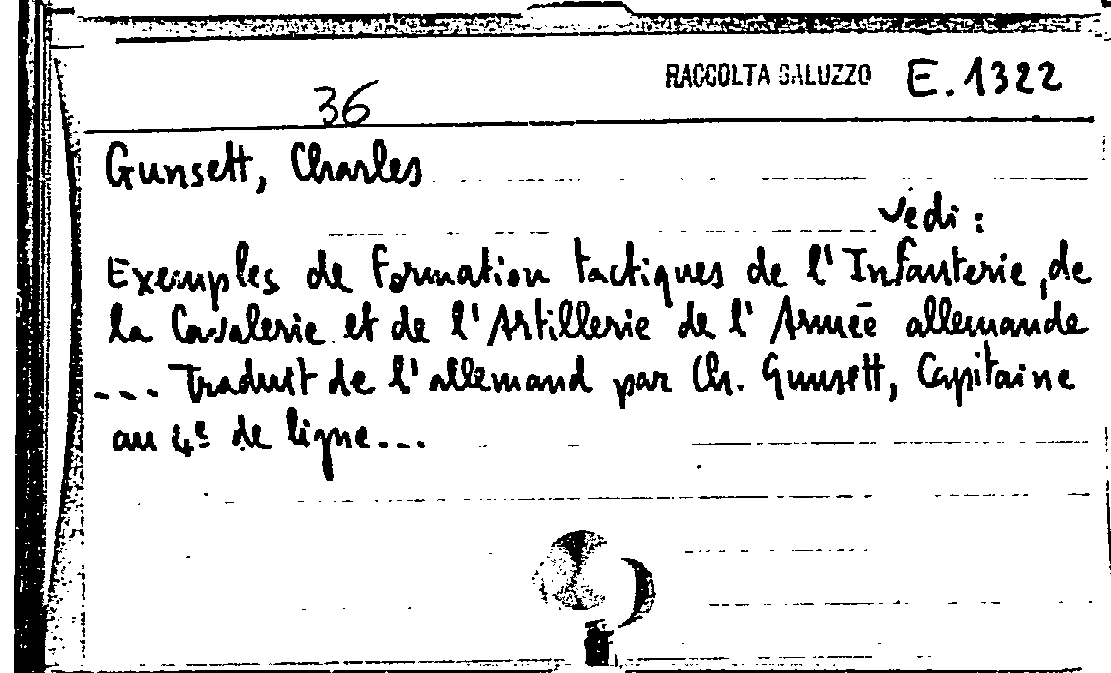 RACCOLTA SALUZZO E.1322
36
Gunsett, Charles
Vedi :
Exemples de formation tactiques de l'Infanterie, de
la Cavalerie et de l'Artillerie de l'Armée allemande
... Traduit de l'allemand par Ch. Gunsett, Capitaine
au 4e de ligne...